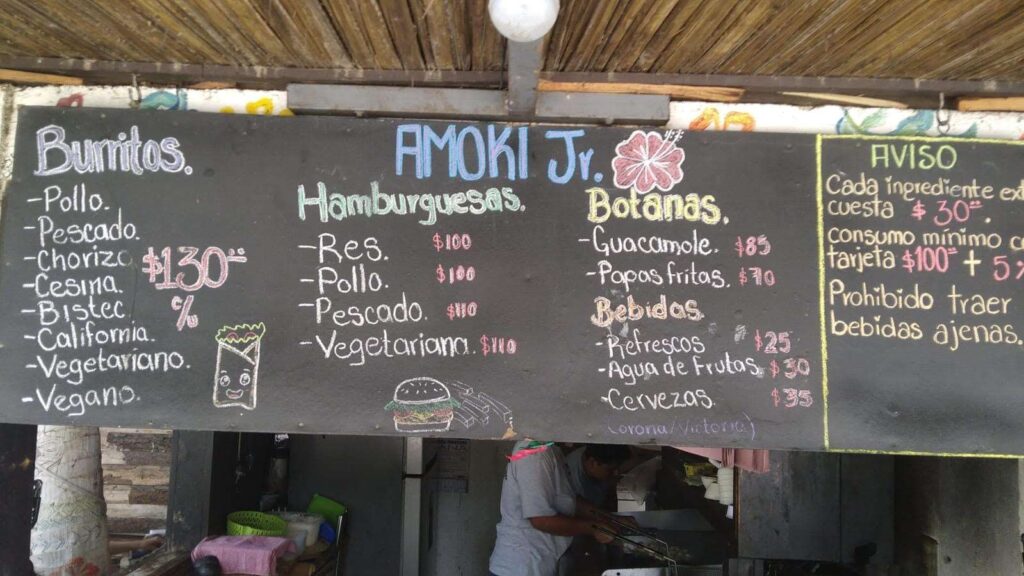 AMOKI Jr.
Burritos.
-Pollo.
-Pescado.
-Chorizo
-Cesina.
-Bistec
-California.
-Vegetariano.
-Vegano.
$130.00
c/u
Hamburguesas.
-Res. $100
-Pollo. $100
-Pescado. $110
-Vegetariana. $110
Botanas.
-Guacamole. $85
-Papas fritas. $70
Bebidas.
-Refrescos $25
-Agua de Frutas. $30
-Cervezas. $35
Corona/Victoria)
AVISO
Cada ingrediente
cuesta $30.00.
consumo mínimo
tarjeta $100.00 + 5%
Prohibido traer
bebidas ajenas.